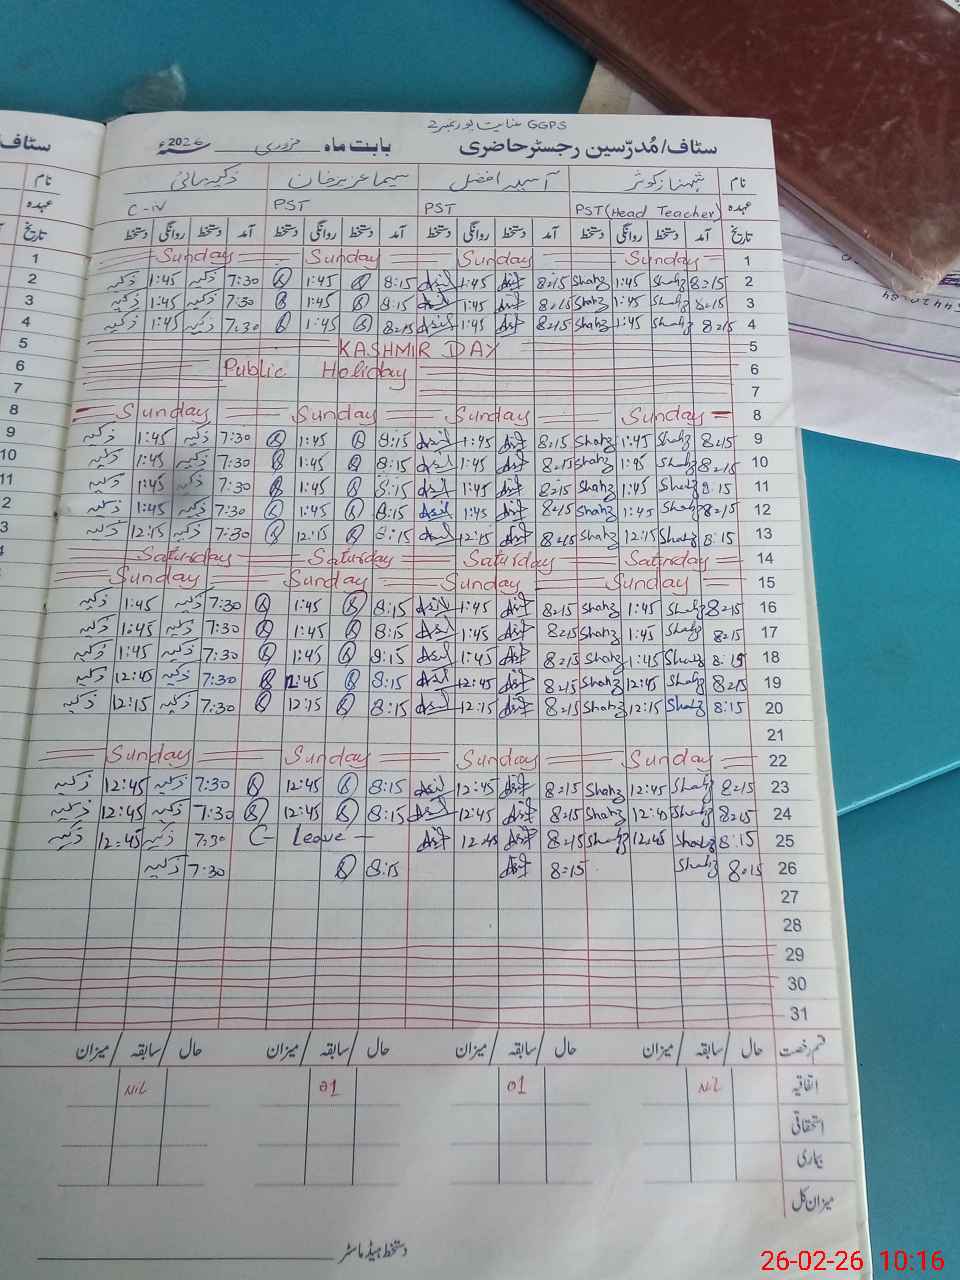 GGPS عنایت پور نمبر 2
سٹاف/مُدرّسین رجسٹر حاضری بابت ماہ فروری 2026ء
نام شہناز کوثر آسیہ افضل سیما عزیز خان
عہدہ PST (Head Teacher) PST PST C-iv
تاریخ آمد دستخط روانگی دستخط آمد دستخط روانگی دستخط آمد دستخط روانگی دستخط آمد دستخط روانگی دستخط
1 Sunday Sunday Sunday Sunday
2 8:15 Shahz 1:45 Shahz 8:15 1:45 8:15 1:45 7:30 ذکیہ 1:45 ذکیہ
3 8:15 Shahz 1:45 Shahz 8:15 1:45 8:15 1:45 7:30 ذکیہ 1:45 ذکیہ
4 8:15 Shahz 1:45 Shahz 8:15 1:45 8:15 1:45 7:30 ذکیہ 1:45 ذکیہ
5 KASHMIR DAY
6 Public Holiday
7
8 Sunday Sunday Sunday Sunday
9 8:15 Shahz 1:45 Shahz 8:15 1:45 8:15 1:45 7:30 ذکیہ 1:45 ذکیہ
10 8:15 Shahz 1:45 Shahz 8:15 1:45 8:15 1:45 7:30 ذکیہ 1:45 ذکیہ
11 8:15 Shahz 1:45 Shahz 8:15 1:45 8:15 1:45 7:30 ذکیہ 1:45 ذکیہ
12 8:15 Shahz 1:45 Shahz 8:15 1:45 8:15 1:45 7:30 ذکیہ 1:45 ذکیہ
13 8:15 Shahz 12:15 Shahz 8:15 12:15 8:15 12:15 7:30 ذکیہ 12:15 ذکیہ
14 Saturday Saturday Saturday Saturday
15 Sunday Sunday Sunday Sunday
16 8:15 Shahz 1:45 Shahz 8:15 1:45 8:15 1:45 7:30 ذکیہ 1:45 ذکیہ
17 8:15 Shahz 1:45 Shahz 8:15 1:45 8:15 1:45 7:30 ذکیہ 1:45 ذکیہ
18 8:15 Shahz 1:45 Shahz 8:15 1:45 8:15 1:45 7:30 ذکیہ 1:45 ذکیہ
19 8:15 Shahz 12:45 Shahz 8:15 12:45 8:15 12:45 7:30 ذکیہ 12:45 ذکیہ
20 8:15 Shahz 12:15 Shahz 8:15 12:15 8:15 12:15 7:30 ذکیہ 12:15 ذکیہ
21
22 Sunday Sunday Sunday Sunday
23 8:15 Shahz 12:45 Shahz 8:15 12:45 8:15 12:45 7:30 ذکیہ 12:45 ذکیہ
24 8:15 Shahz 12:45 Shahz 8:15 12:45 8:15 12:45 7:30 ذکیہ 12:45 ذکیہ
25 8:15 Shahz 12:45 Shahz 8:15 12:45 C- Leave 7:30 ذکیہ 12:45 ذکیہ
26 8:15 Shahz 8:15 8:15 7:30 ذکیہ
27
28
29
30
31
قسم رخصت حال / سابقہ / میزان حال / سابقہ / میزان حال / سابقہ / میزان حال / سابقہ / میزان
اتفاقیہ Nil 01 01 Nil
استحقاقی
بیماری
میزان کل
دستخط ہیڈ ماسٹر
26-02-26 10:16